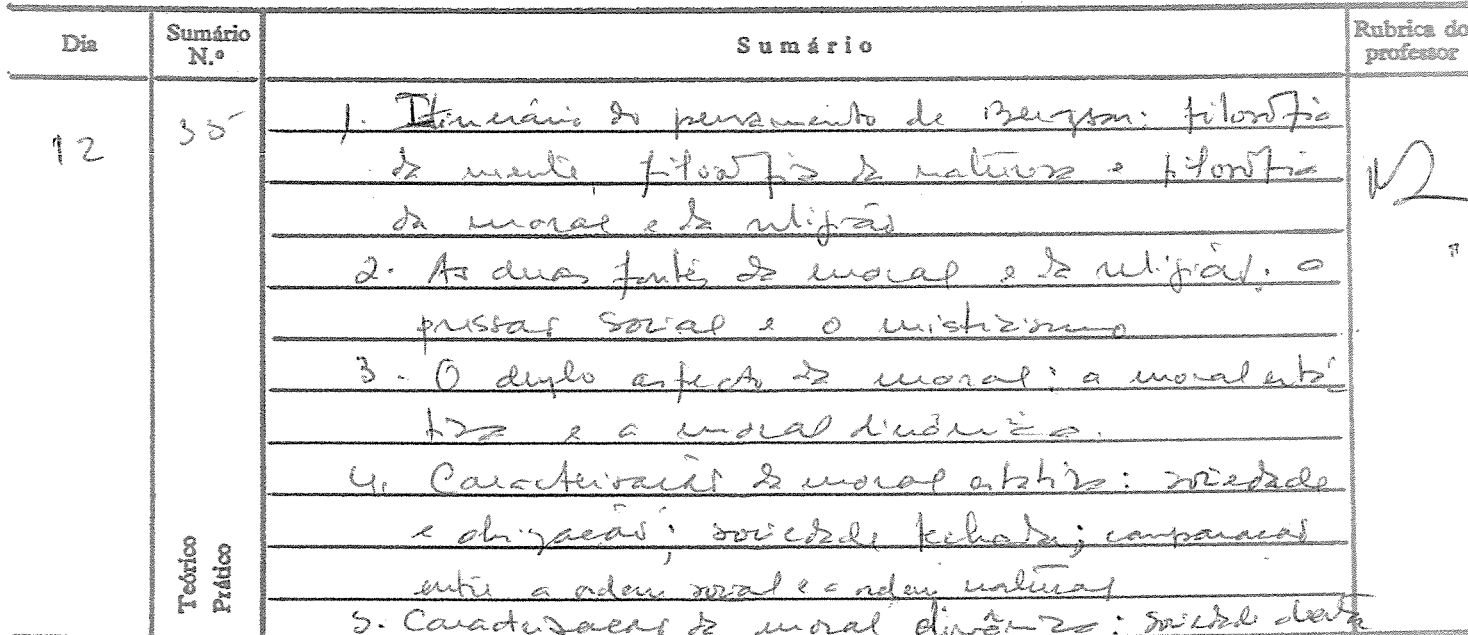 Dia
Sumário N.º
Sumário
Rubrica do professor
12
35
1. Itinerário do pensamento de Bergson: filosofia
da mente, filosofia da natureza e filosofia
da moral e da religião
2. As duas fontes da moral e da religião: a
pressão social e o misticismo
3. O duplo aspecto da moral: a moral está
tica e a moral dinâmica.
4. Caracterização da moral estática: sociedade
e obrigação; sociedade fechada; comparação
entre a ordem social e a ordem natural
5. Caracterização da moral dinâmica: sociedade
Teórico
Prático